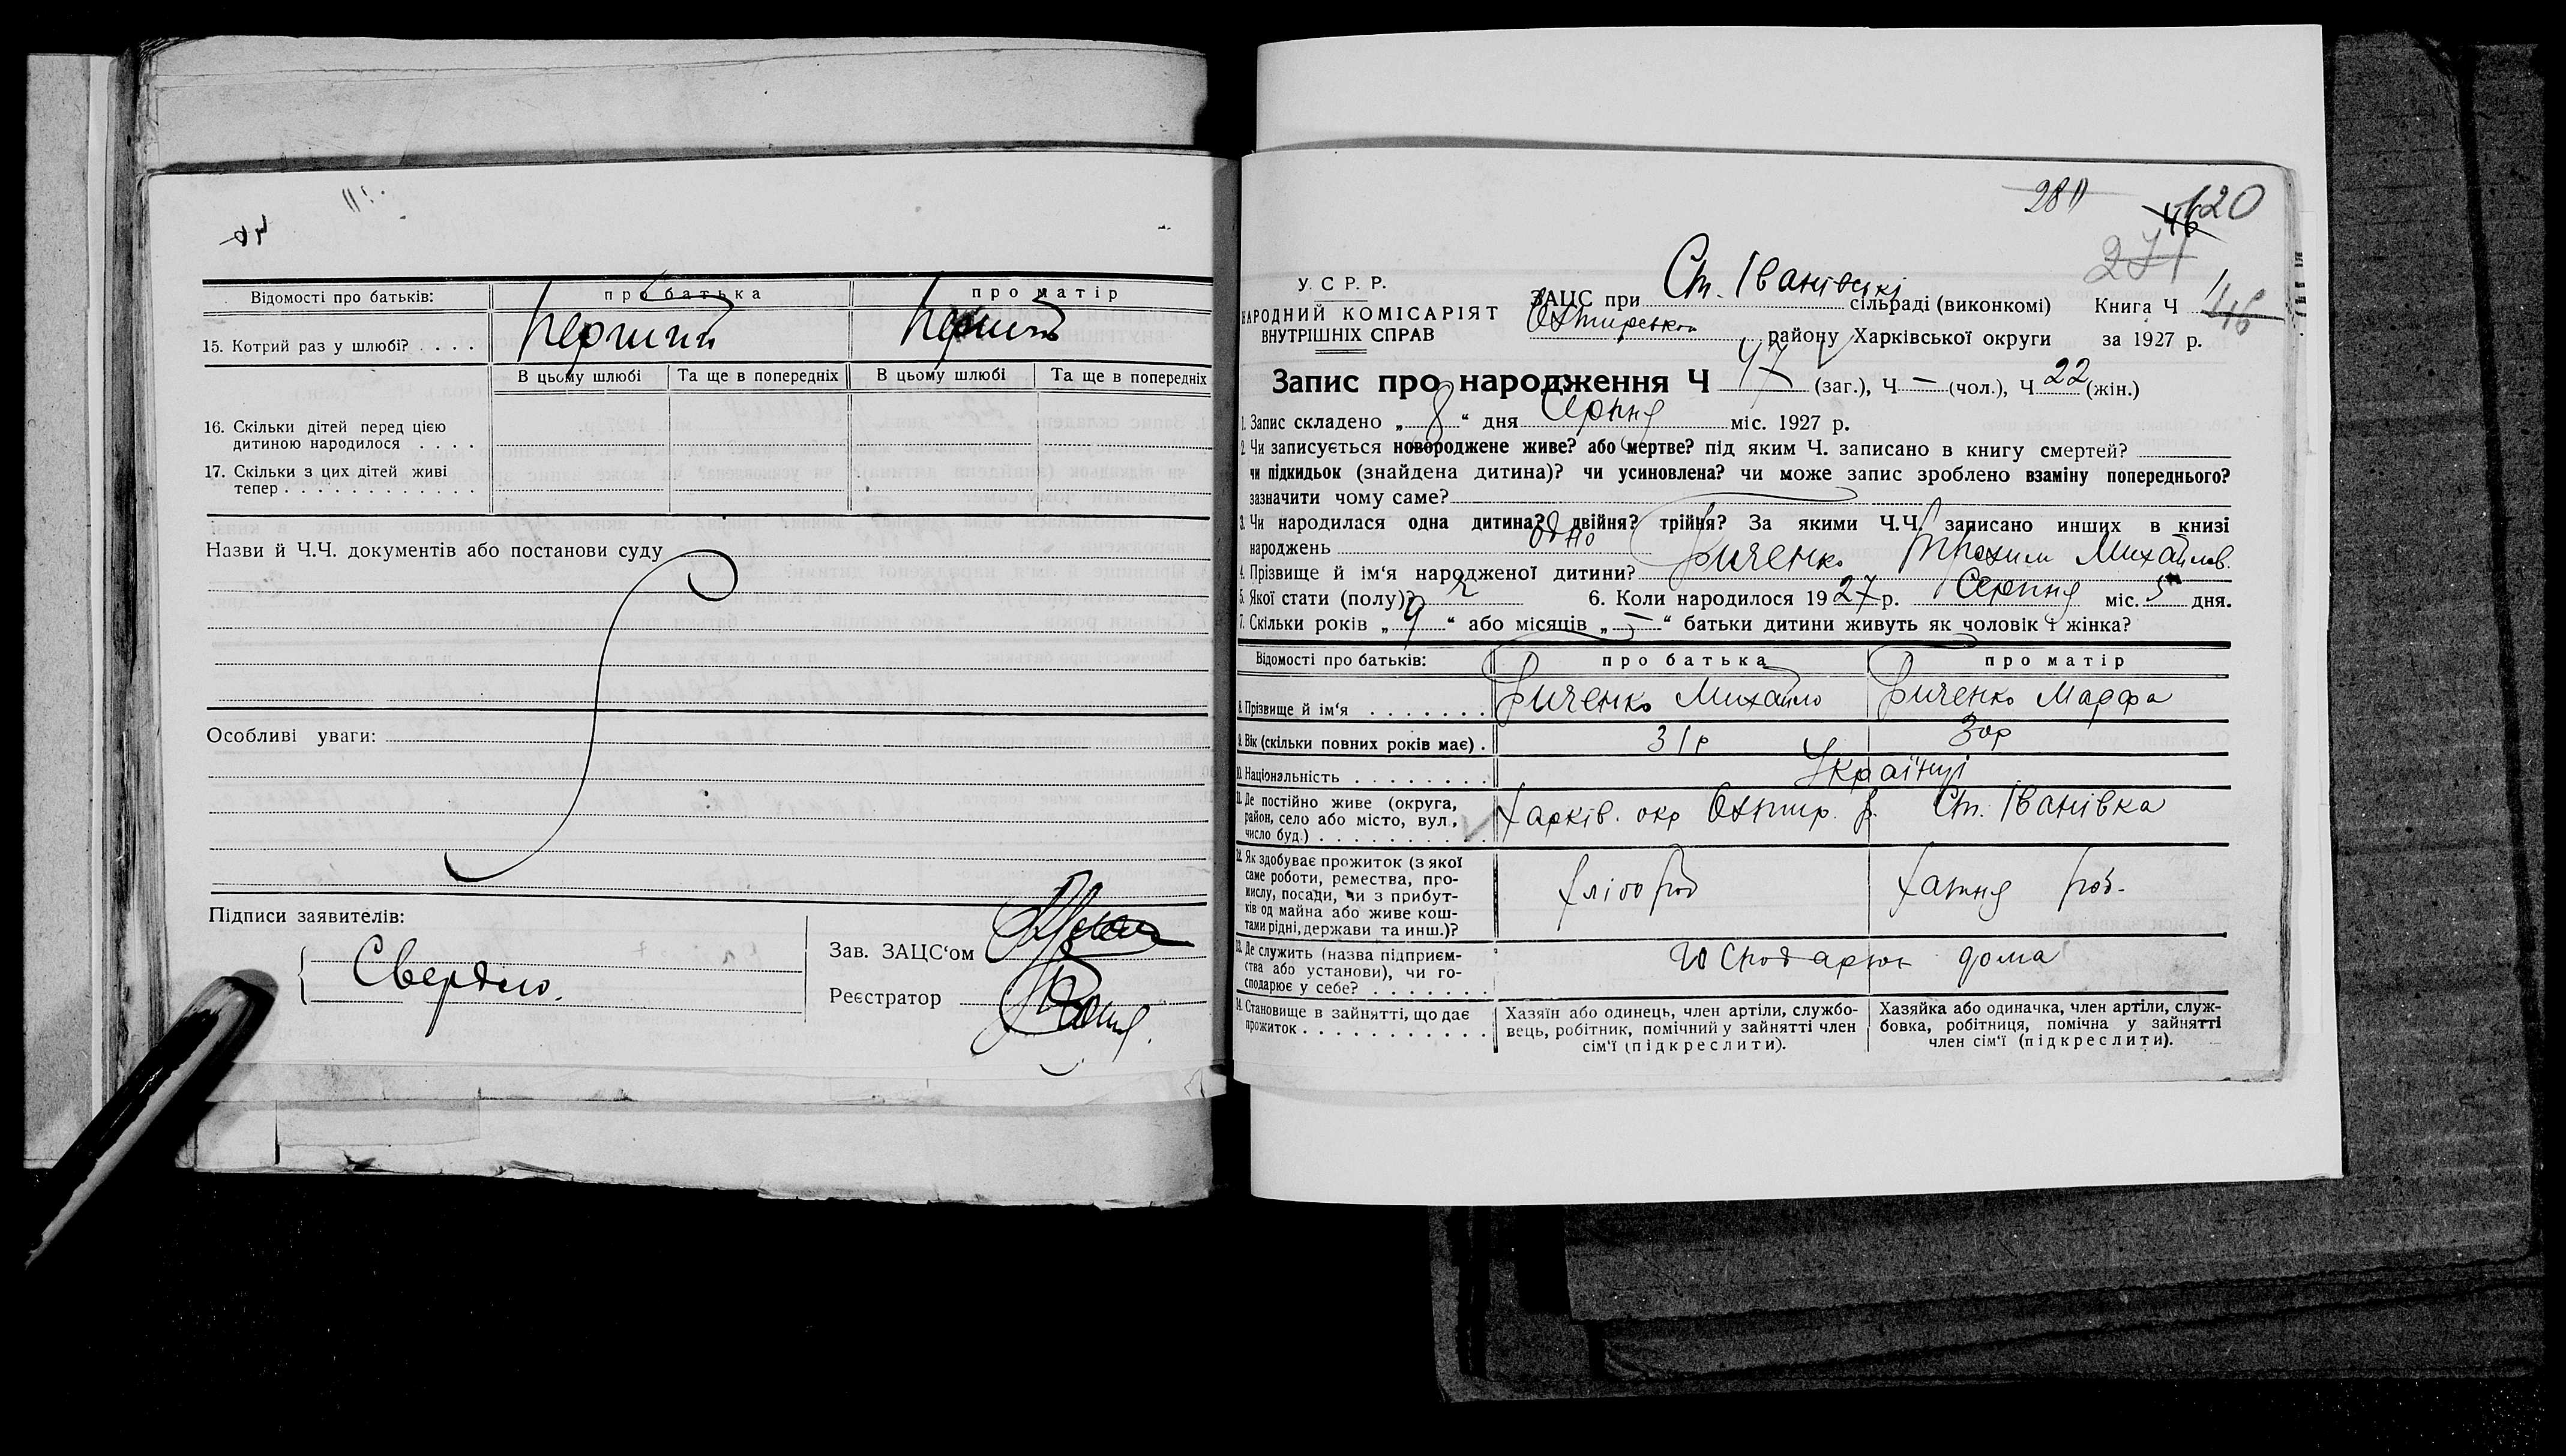 Відомості про батьків: про батька про матір
15. Котрий раз у шлюбі? . . . . Перший Перший
В цьому шлюбі Та ще в попередніх В цьому шлюбі Та ще в попередніх
16. Скільки дітей перед цією
дитиною народилося . . . .
17. Скільки з цих дітей живі
тепер . . . . . . . . . . . .
Назви й Ч.Ч. документів або постанови суду
Особливі уваги:
Підписи заявителів:
Зав. ЗАЦС‘ом
Реєстратор
280
46 120
271
У. С. Р. Р.
НАРОДНИЙ КОМІСАРІЯТ
ВНУТРІШНІХ СПРАВ
ЗАЦС при Ст. Іванівскі сільраді (виконкомі) Книга Ч
Охтирськом району Харківської округи за 1927 р.
Запис про народження Ч 47 (заг.), Ч — (чол.), Ч 22 (жін.)
1. Запис складено „ 8 “ дня Серпня міс. 1927 р.
2. Чи записується новороджене живе? або мертве? під яким Ч. записано в книгу смертей?
чи підкидьок (знайдена дитина)? чи усиновлена? чи може запис зроблено взаміну попереднього?
зазначити чому саме?
3. Чи народилася одна дитина? двійня? трійня? За якими Ч.Ч. записано инших в книзі
народжень одно
4. Прізвище й ім‘я народженої дитини? Риченко Михайлов.
5. Якої стати (полу)? 6. Коли народилось 1927 р. Серпня міс. 5 дня.
7. Скільки років „ 9 “ або місяців „ — “ батьки дитини живуть як чоловік і жінка?
Відомості про батьків: про батька про матір
8. Прізвище й ім‘я . . . . . . . Риченко Михайло Риченко Марфа
9. Вік (скільки повних років має) . 31р 30р
10. Національність . . . . . . . . Українці
11. Де постійно живе (округа,
район, село або місто, вул.,
число буд.) . . . . . . . . . . Харків. окр Охтир. р. Ст. Іванівка
12. Як здобуває прожиток (з якої
саме роботи, ремества, про-
мислу, посади, чи з прибут-
ків од майна або живе кош-
тами рідні, держави та инш.)? Хлібороб Хатня роб.
13. Де служить (назва підприєм-
ства або установи), чи го-
сподарює у себе? . . . . . . . дома
14. Становище в зайнятті, що дає
прожиток . . . . . . . . . . .
Хазяїн або одинець, член артіли, службо-
вець, робітник, помічний у зайнятті член
сім‘ї (підкреслити).
Хазяйка або одиначка, член артіли, служ-
бовка, робітниця, помічна у зайнятті
член сім‘ї (підкреслити).